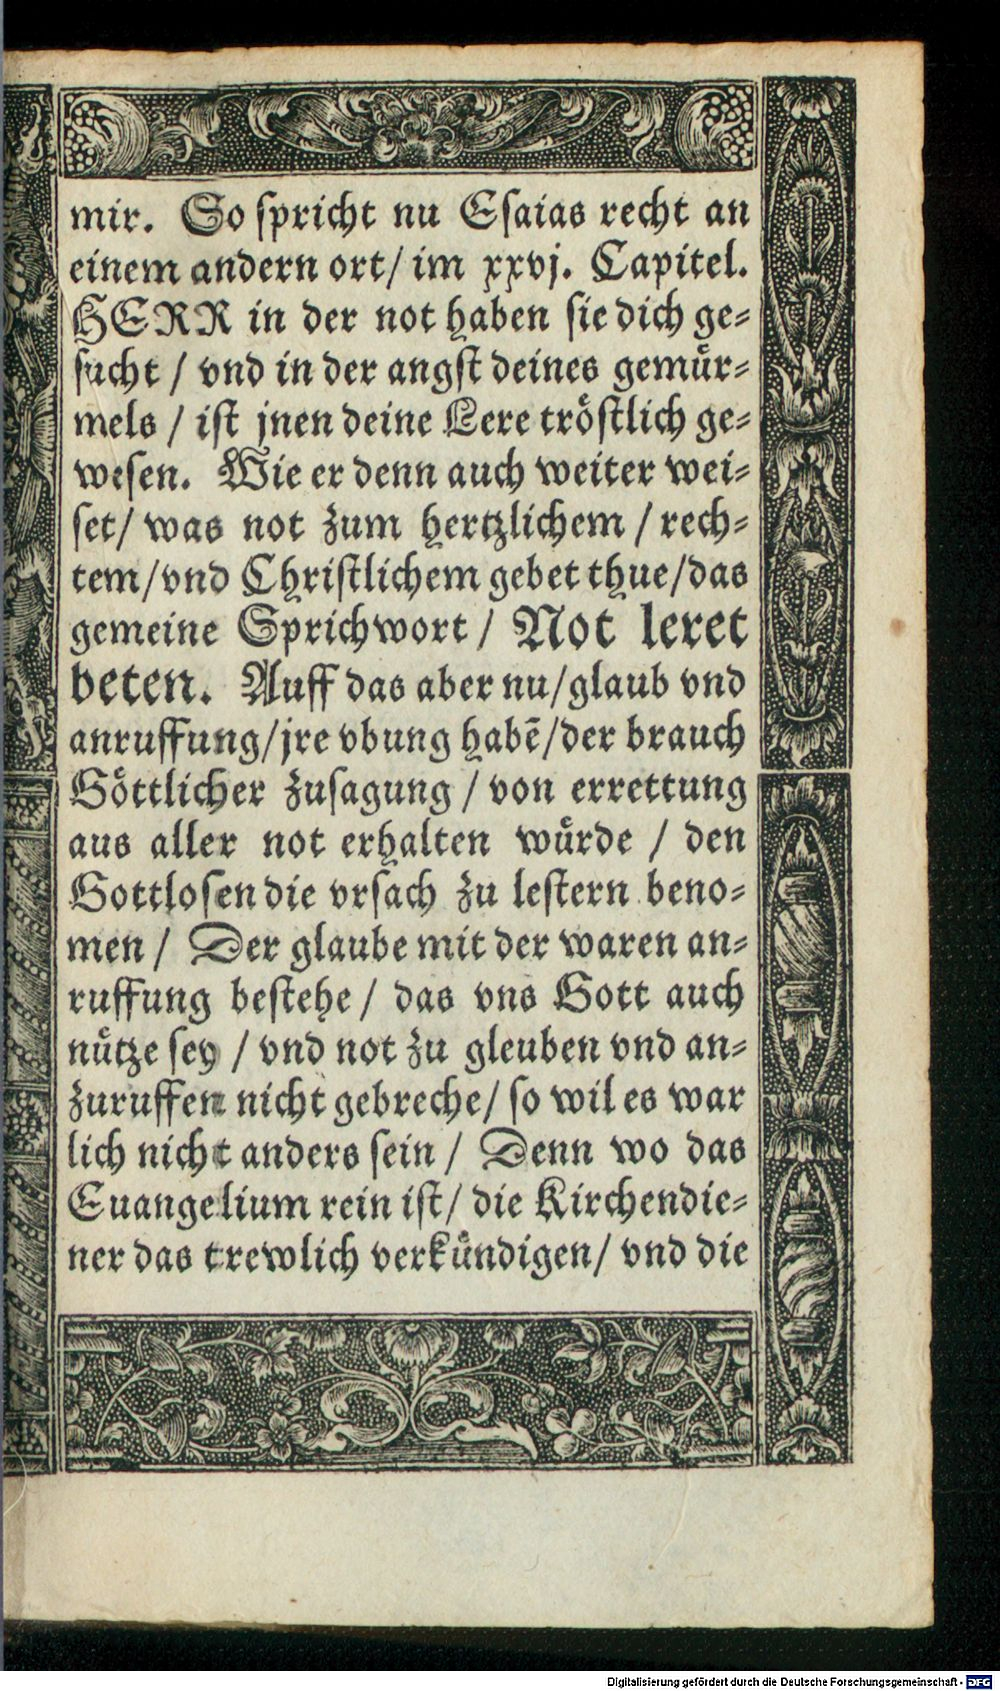 mir. So spricht nu Esaias recht an
einem andern ort/ im xxvj. Capitel.
HERR in der not haben sie dich ge⸗
sucht / vnd in der angst deines gemuͤr⸗
mels / ist jnen deine Lere troͤstlich ge⸗
wesen. Wie er denn auch weiter wei⸗
set/ was not zum hertzlichem / rech⸗
tem/vnd Christlichem gebet thue/das
gemeine Sprichwort / Not leret
beten. Auff das aber nu/glaub vnd
anruffung/jre vbung habē/der brauch
Goͤttlicher zusagung / von errettung
aus aller not erhalten wuͤrde / den
Gottlosen die vrsach zu lestern beno⸗
men / Der glaube mit der waren an⸗
ruffung bestehe / das vns Gott auch
nuͤtze sey / vnd not zu gleuben vnd an⸗
zuruffen nicht gebreche/ so wil es war
lich nicht anders sein / Denn wo das
Euangelium rein ist/ die Kirchendie⸗
ner das trewlich verkuͤndigen/ vnd die
Digitalisierung gefördert durch die Deutsche Forschungsgemeinschaft - DFG